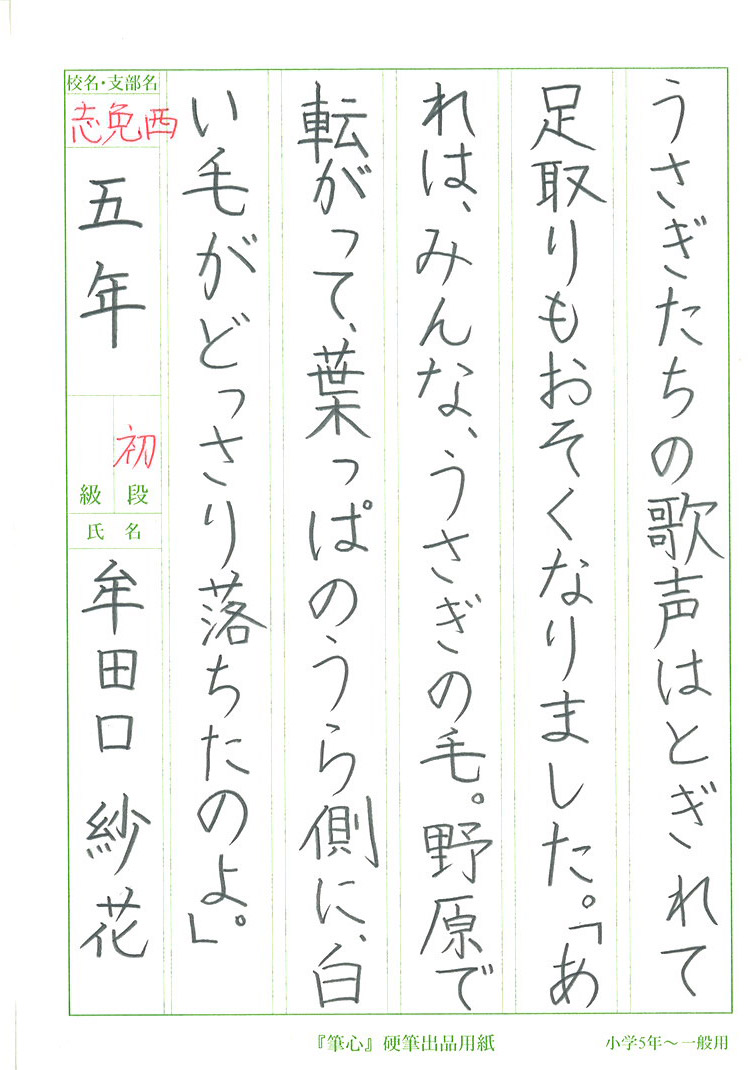 うさぎたちの歌声はとぎれて
足取りもおそくなりました。「あ
れは、みんな、うさぎの毛。野原で
転がって、葉っぱのうら側に、白
い毛がどっさり落ちたのよ。」
校名・支部名
志免西
五年
初
級段
氏名
牟田口 紗花
『筆心』硬筆出品用紙
小学5年〜一般用